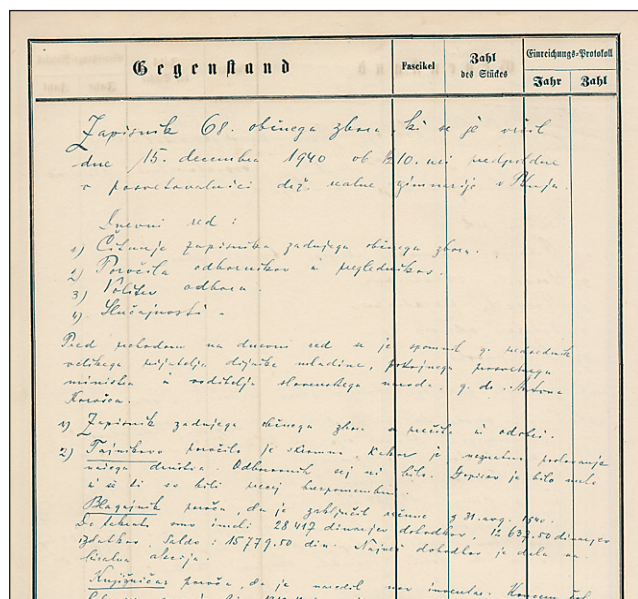 Gegenstand
Fascikel
Zahl
des Stückes
Einreichungs-Protokoll
Jahr
Zahl
Zapisnik 68. občnega zbora, ki se je vršil
dne 15. decembra 1940 ob ½10. uri predpoldne
v posvetovalnici drž. realne gimnazije v Ptuju.
Dnevni red :
1) Čitanje zapisnika zadnjega občnega zbora.
2) Poročila odbornikov in preglednikov.
3) Volitev odbora.
4) Slučajnosti.
Pred prehodom na dnevni red se je spomnil g. predsednik
velikega prijatelja dijaške mladine, pokojnega prosvetnega
ministra in voditelja slovenskega naroda, g. dr. Antona
Korošca.
1) Zapisnik zadnjega občnega zbora se prečita in odobri.
2) Tajnikovo poročilo je skromno, kakor je neznatno
našega društva. Odborovih sej ni bilo. Dopisov je bilo malo
in ti so bili precej brezpomembni.
Blagajnik poroča, da je zaključil račune z 31. avg. 1940.
smo imeli 28417 dinarjev dohodkov, 12.637.50 dinarjev
izdatkov. Saldo : 15779.50 din. Največ dohodkov je dala
akcija.
Knjižničar poroča, da je naredil nov inventar.